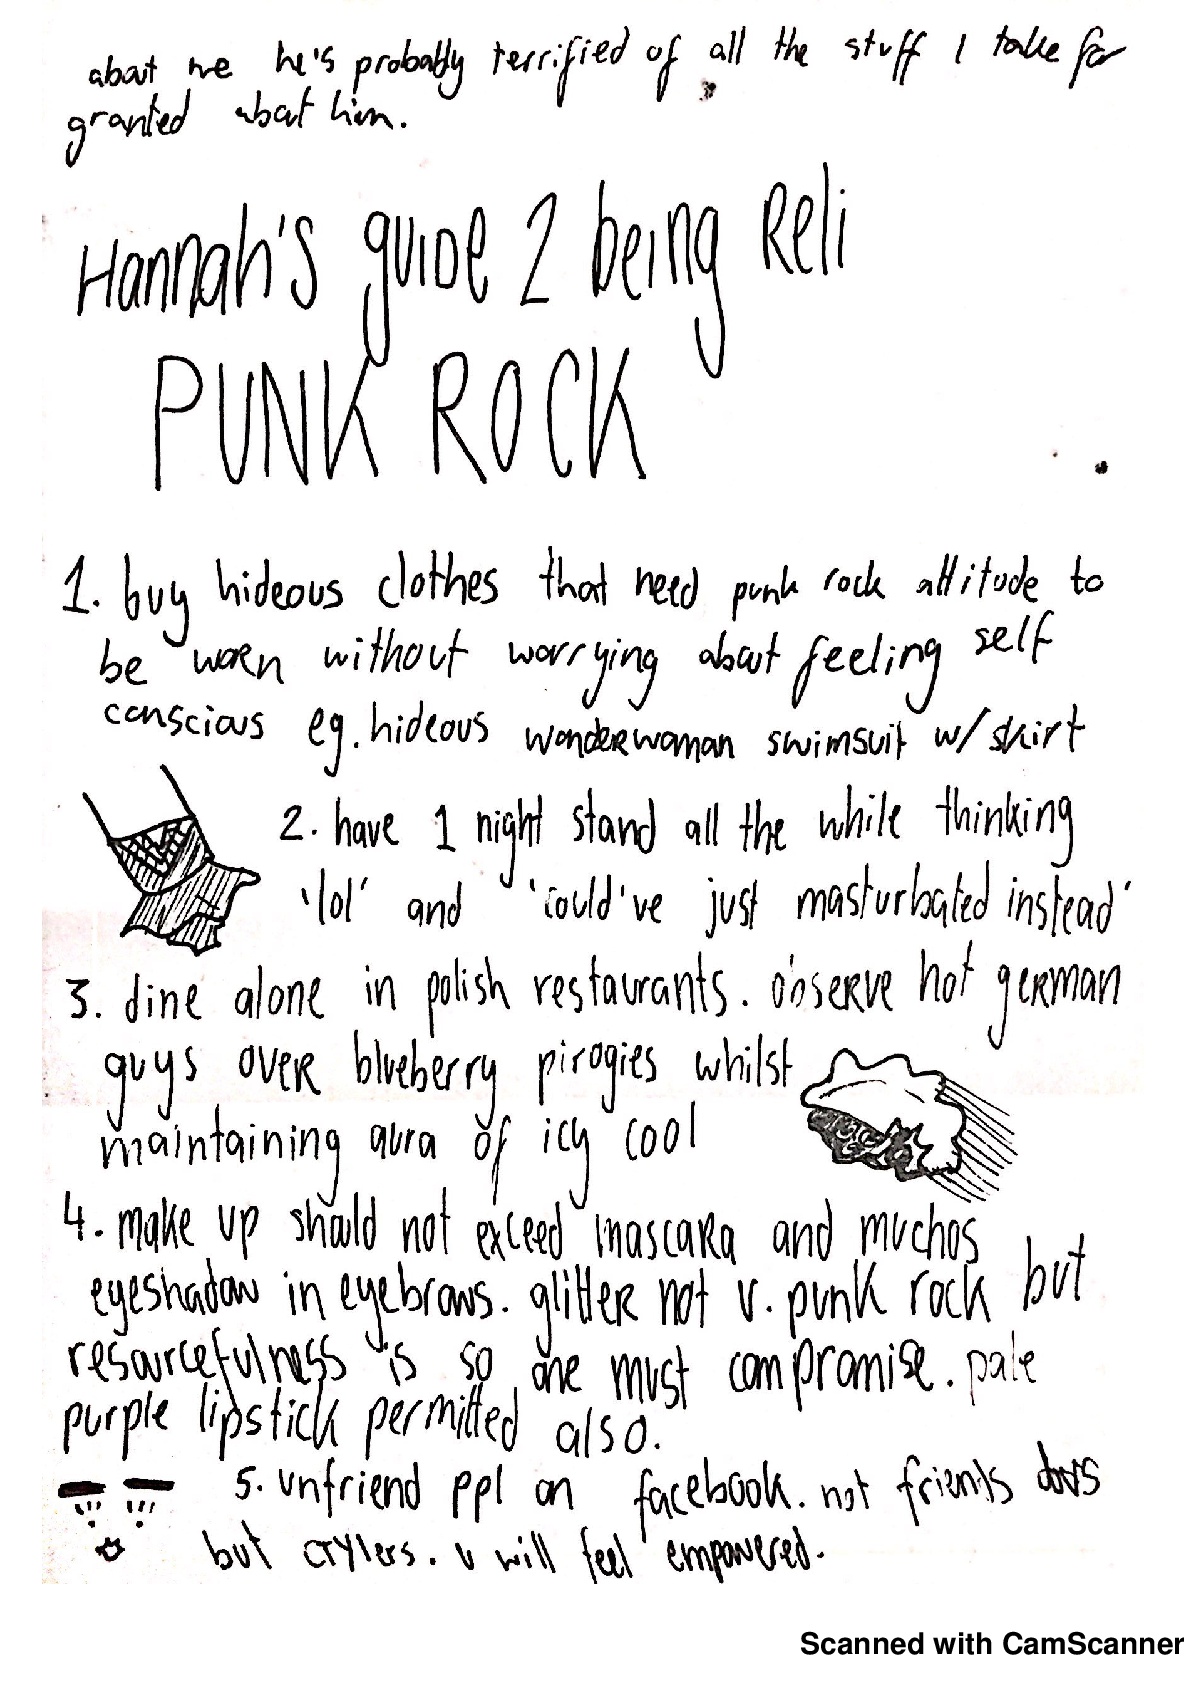 about me he's probably terrified of all the stuff I take for
granted about him.
Hannah's guide 2 being Reli
PUNK ROCK
1. buy hideous clothes that need punk rock attitude to
be worn without worrying about feeling self
conscious eg. hideous wonderwoman swimsuit w/ skirt
2. have 1 night stand all the while thinking
'lol' and 'could've just masturbated instead'
3. dine alone in polish restaurants. observe hot german
guys over blueberry pirogies whilst
maintaining aura of icy cool
4. make up should not exceed mascara and muchos
eyeshadow in eyebrows. glitter not v. punk rock but
resourcefulness is so one must compromise. pale
purple lipstick permitted also.
5. unfriend ppl on facebook. not friends
but. u will feel empowered.
Scanned with CamScanner